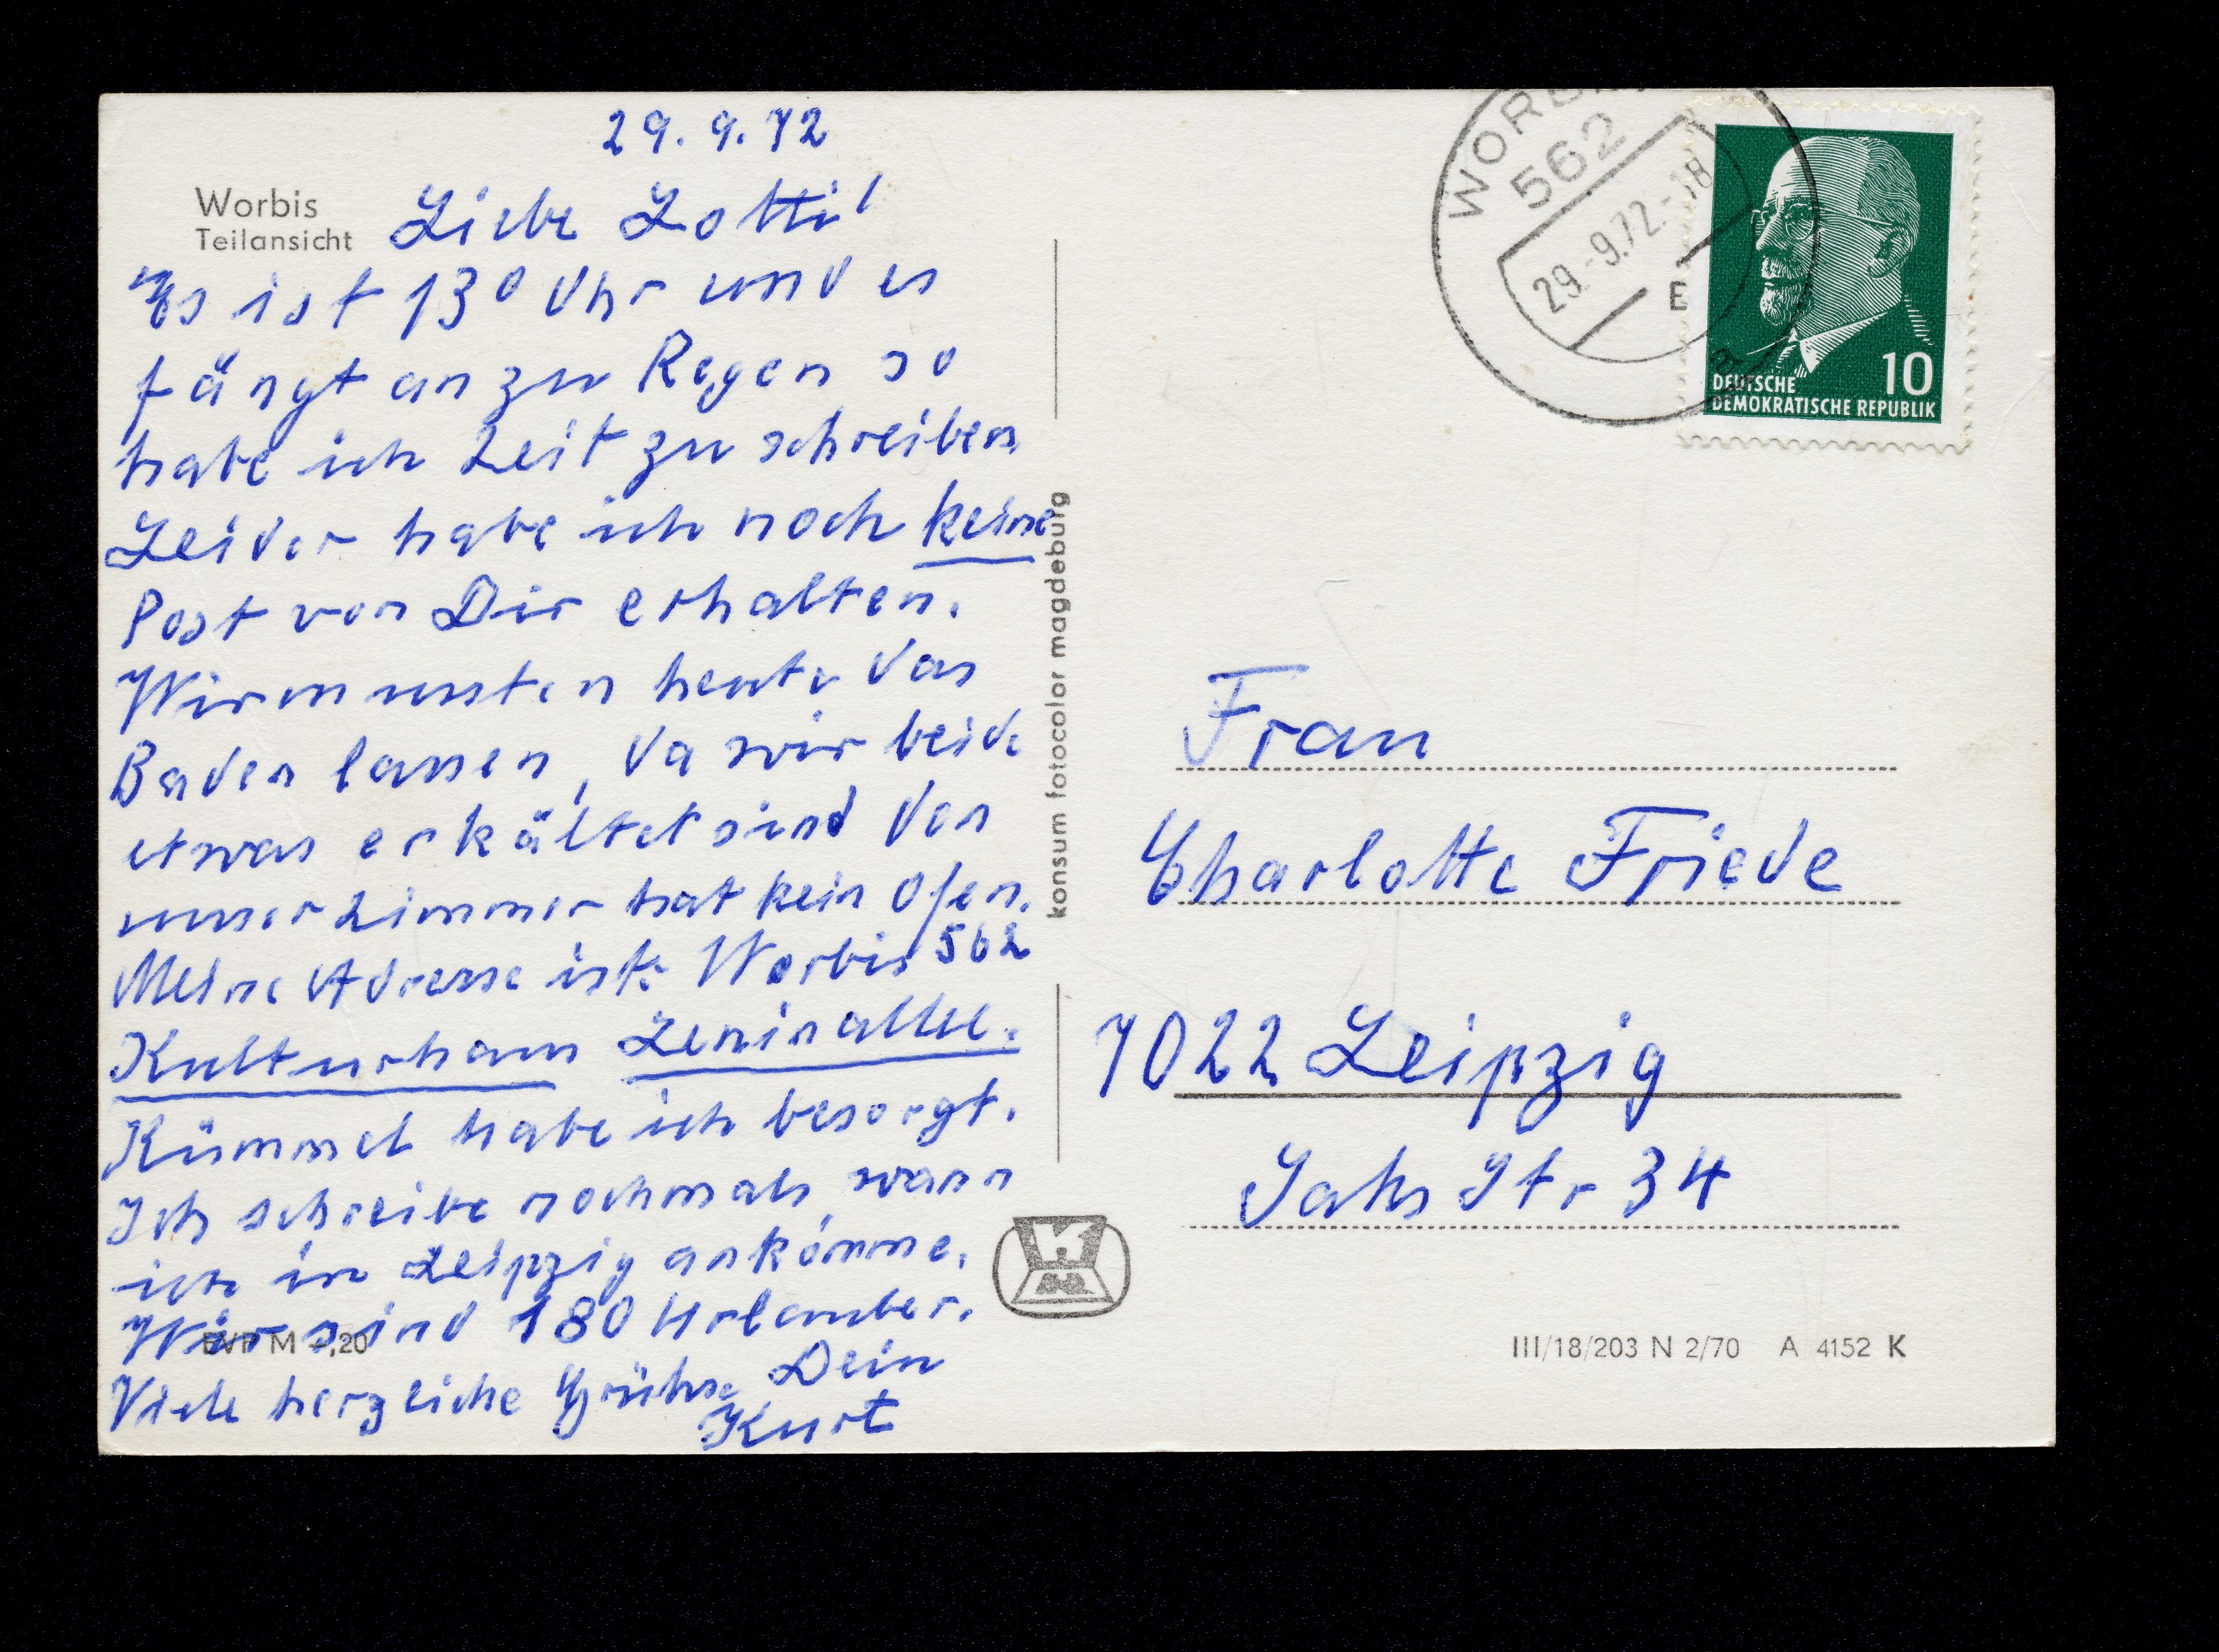 29.9.72
Worbis
Teilansicht
Liebe Lotti!
Es ist 13⁰ Uhr und es
fängt an zu Regen so
habe ich Zeit zu schreiben
Leider habe ich noch keine
Post von Dir erhalten.
Wir mussten heute das
Baden lassen, da wir beide
etwas erkältet sind den
unser Zimmer hat kein Ofen.
Meine Adresse ist: Worbis 562
Kulturhaus Leninallee.
Kümmel habe ich besorgt.
Ich schreibe nochmals, wann
ich in Leipzig ankomme.
Wir sind 180 Urlauber.
EVP M -,20
Viele herzliche Grüße Dein
Kurt
konsum fotocolor magdeburg
WORBIS
562
29.-9.72.-18
E
10
DEUTSCHE
DEMOKRATISCHE REPUBLIK
Frau
Charlotte Friede
7022 Leipzig
Str 34
III/18/203 N 2/70 A 4152 K